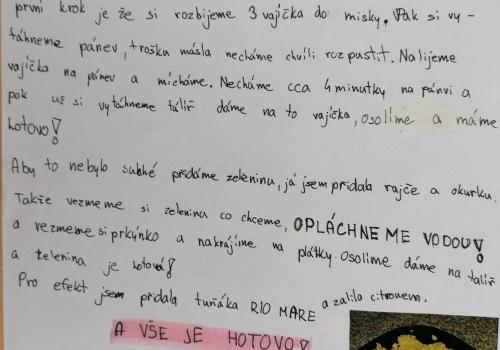 první krok je že si rozbijeme 3 vajíčka do misky. Pak si vy-
táhneme pánev, trošku másla necháme chvíli rozpustit. Nalijeme
vajíčka na pánev a mícháme. Necháme cca 4 minutky na pánvi a
pak už si vytáhneme talíř dáme na to vajíčka, osolíme a máme
hotovo!
Aby to nebylo suché přidáme zeleninu, já jsem přidala rajče a okurku.
Takže vezmeme si zeleninu co chceme, OPLÁCHNEME VODOU!
a vezmeme si prkýnko a nakrájíme na plátky. Osolíme dáme na talíř
a zelenina je hotová!
Pro efekt jsem přidala tuňáka RIO MARE a zalila citronem.
A VŠE JE HOTOVO!